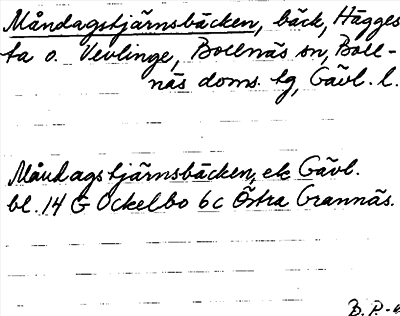 Måndagstjärnsbäcken, bäck, Hägges
ta o. Vevlinge, Bollnäs sn, Boll-
näs doms. tg, Gävl. l.
Måndagstjärnsbäcken, ek Gävl.
bl. 14 G Ockelbo 6c Östra Grannäs.
B. P.